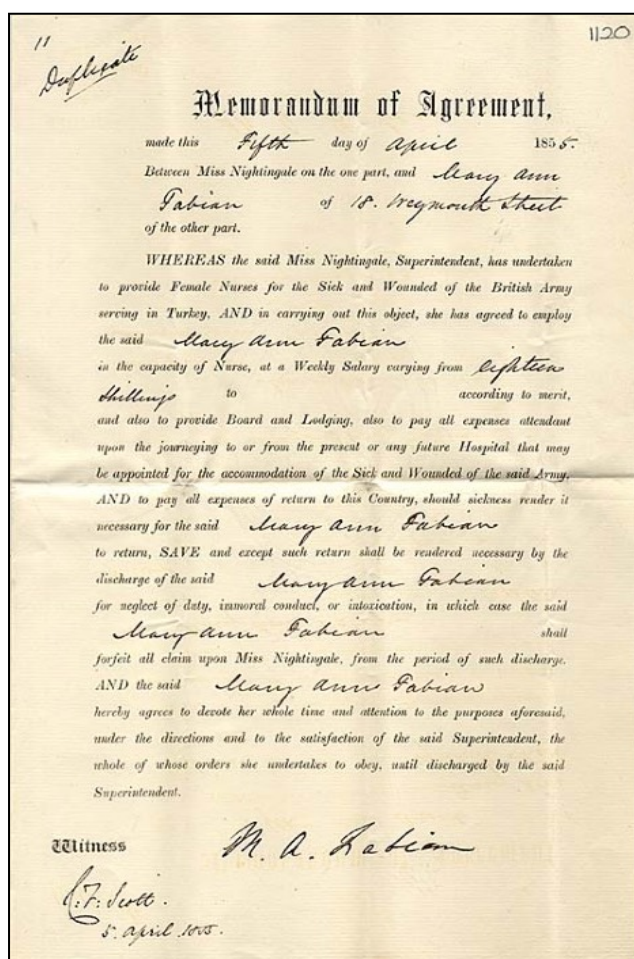 11
Duplicate
1120
Memorandum of Agreement,
made this Fifth day of April 1855.
Between Miss Nightingale on the one part, and Mary Ann
Fabian of 18. Weymouth Street
of the other part.
WHEREAS the said Miss Nightingale, Superintendent, has undertaken
to provide Female Nurses for the Sick and Wounded of the British Army
serving in Turkey, AND in carrying out this object, she has agreed to employ
the said Mary Ann Fabian
in the capacity of Nurse, at a Weekly Salary varying from eighteen
shillings to according to merit,
and also to provide Board and Lodging, also to pay all expenses attendant
upon the journeying to or from the present or any future Hospital that may
be appointed for the accommodation of the Sick and Wounded of the said Army,
AND to pay all expenses of return to this Country, should sickness render it
necessary for the said Mary Ann Fabian
to return, SAVE and except such return shall be rendered necessary by the
discharge of the said Mary Ann Fabian
for neglect of duty, immoral conduct, or intoxication, in which case the said
Mary Ann Fabian shall
forfeit all claim upon Miss Nightingale, from the period of such discharge.
AND the said Mary Ann Fabian
hereby agrees to devote her whole time and attention to the purposes aforesaid,
under the directions and to the satisfaction of the said Superintendent, the
whole of whose orders she undertakes to obey, until discharged by the said
Superintendent.
Witness M. A. Fabian
C. F. Scott.
5. April 1855.